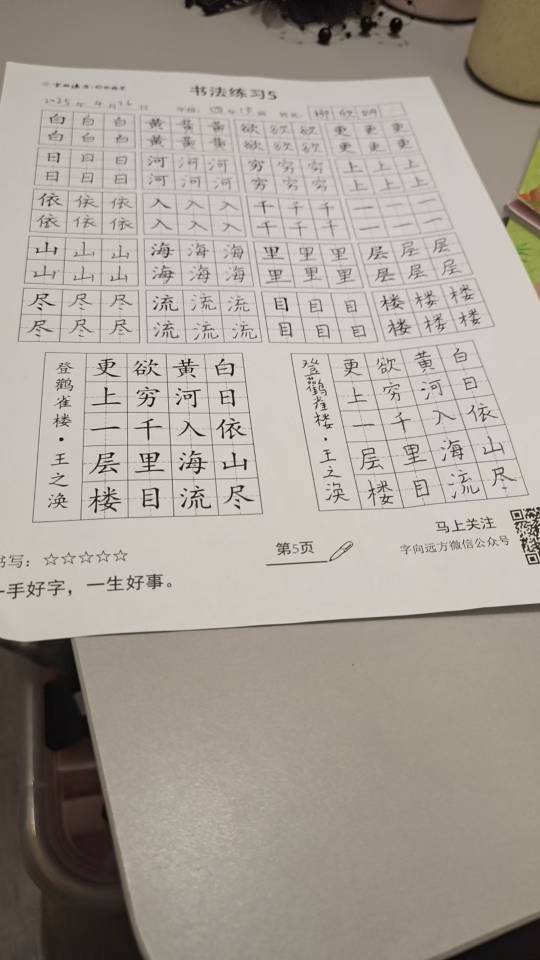 书法练习5
2025年4月26日 年级：四年
白白白 黄黄黄 欲欲欲 更更更
白白白 黄黄黄 欲欲欲 更更更
日日日 河河河 穷穷穷 上上上
日日日 河河河 穷穷穷 上上上
依依依 入入入 千千千 一一一
依依依 入入入 千千千 一一一
山山山 海海海 里里里 层层层
山山山 海海海 里里里 层层层
尽尽尽 流流流 目目目 楼楼楼
尽尽尽 流流流 目目目 楼楼楼
登鹳雀楼·王之涣
白日依山尽
黄河入海流
欲穷千里目
更上一层楼
登鹳雀楼·王之涣
白日依山尽
黄河入海流
欲穷千里目
更上一层楼
书写：☆☆☆☆☆
第5页
马上关注
字向远方微信公众号
一手好字，一生好事。